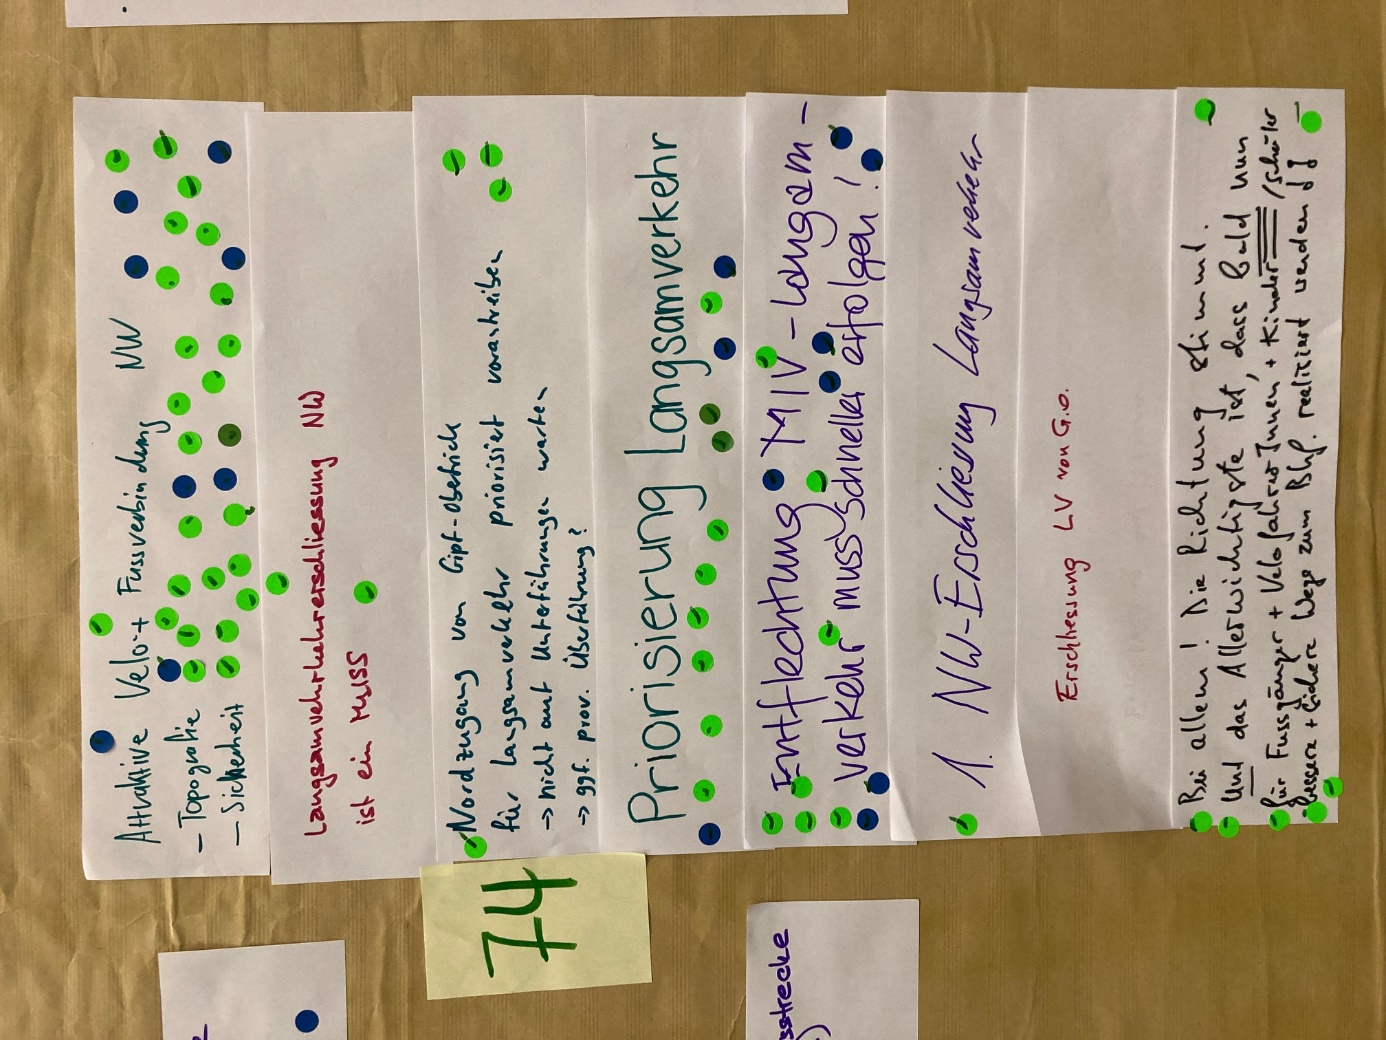 Attraktive Velo + Fussverbindung NW
- Topografie
- Sicherheit
Langsamverkehrerschliessung NW
ist ein MUSS
Nordzugang von Gipf-Oberfrick
für Langsamverkehr priorisiert vorantreiben
→ nicht auf Unterführungen warten
→ ggf. prov. Überführung?
Priorisierung Langsamverkehr
Entflechtung MIV - Langsam-
verkehr muss schneller erfolgen!
1. NW-Erschliessung Langsamverkehr
Erschliessung LV von G.O.
Bei allem! Die Richtung stimmt.
Und das Allerwichtigste ist, dass bald nun
für Fussgänger + VelofahrerInnen + Kinder/Schüler
bessere + sichere Wege zum Bhf. realisiert werden!!
74
sstrecke